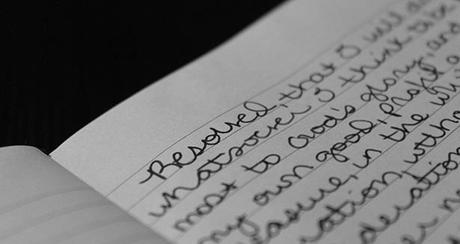 Resolved, that I will
whatsoever I think to be
most to God's glory, and
my own good, profit
easure, in the
uration,
deration